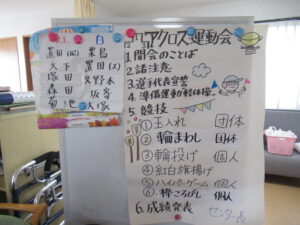 紅 白
大下
塚田 久野木
森田 坂本
菊池 大塚
アクロス運動会
1.開会のことば
2.諸注意
3.選手代表宣誓
4.準備運動・軽体操
5.競技
①玉入れ 団体
②輪まわし 団体
③輪投げ 個人
④紅白旗揚げ
⑤ハイパーゲーム 個人
⑥棒ころがし 個人
6.成績発表
センター長